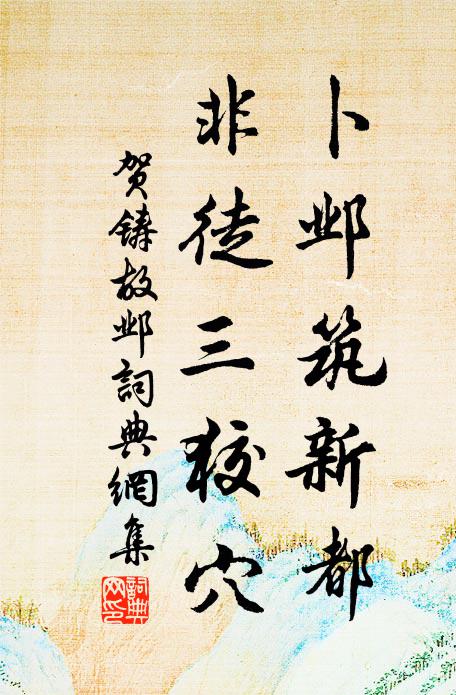 卜邺筑新都
非徒三狡穴
贺铸故邺詞典網集
詞典